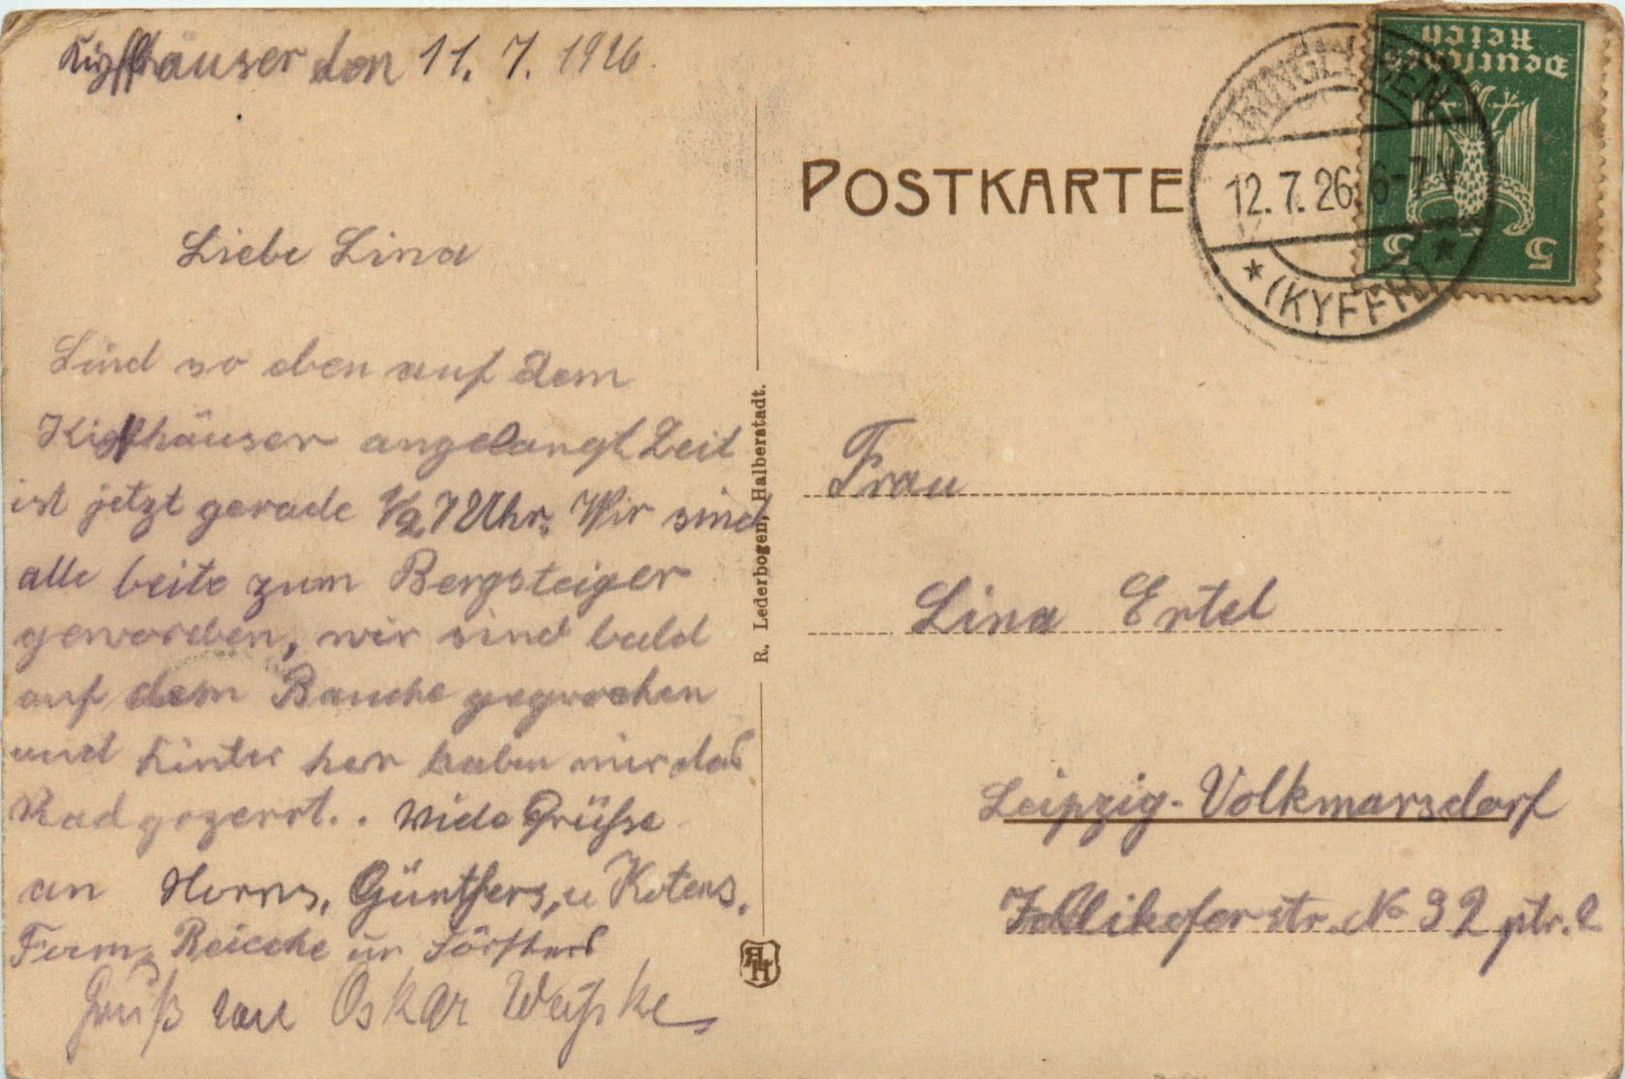 Kipffhäuser den 11. 7. 1926.
Liebe Lina
Sind so eben auf dem
Kipffhäuser angelangt Zeit
ist jetzt gerade 1/2 7 Uhr. Wir sind
alle beite zum Bergsteiger
geworden, wir sind bald
auf dem Bauche gegrochen
und hinter her haben wir das
Rad gezerrt.. Viele Grüße
an Horns, Günthers, u Kotens,
Fam, Reicche un
Gruß von Oskar
POSTKARTE
R. Lederbogen, Halberstadt.
RH
Deutsches
Reich
5 5
RINGLEBEN
12.7.26. 6-7V
* (KYFFH) *
Frau
Lina Ertel
Leipzig-Volkmarsdorf
Zollikoferstr. No 32 ptr. l